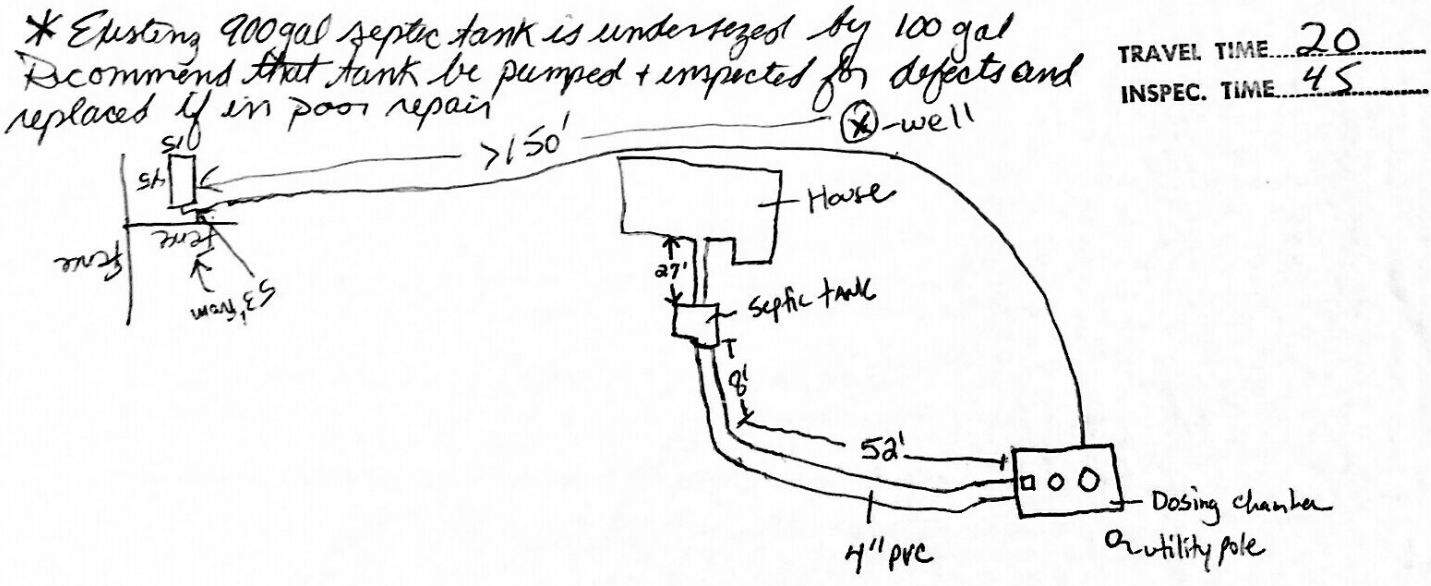 * Existing 900 gal septic tank is undersized by 100 gal
Recommend that tank be pumped + inspected for defects and
replaced if in poor repair
TRAVEL TIME 20
INSPEC. TIME 45
X - well
>150'
15
45
House
fence
fence
27'
53' from
septic tank
8'
52'
Dosing chamber
utility pole
4" PVC